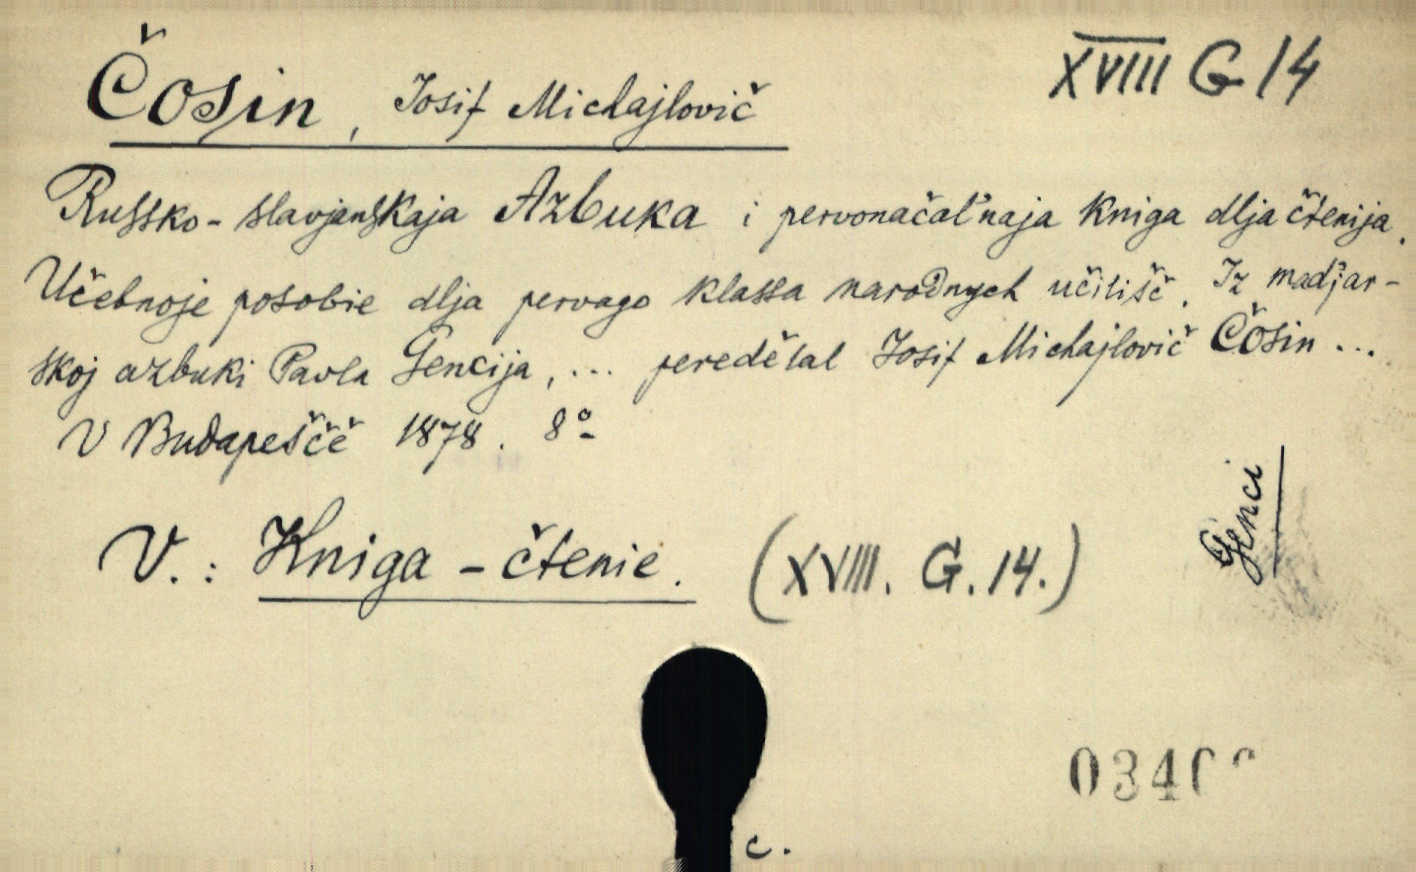 XVIII G 14
Čosin, Iosif Michajlovič
Russko-slavjanskaja Azbuka i pervonačal'naja kniga dlja čtenija.
Učebnoje posobie dlja pervago klassa narodnych učilišč. Iz mad'jar-
skoj azbuki Pavla Gencija, ... peredělal Iosif Michajlovič Čosin ...
V Budapeščě 1878. 8°
Genci
V.: Kniga - čtenie. (XVIII. G. 14.)
034
c.